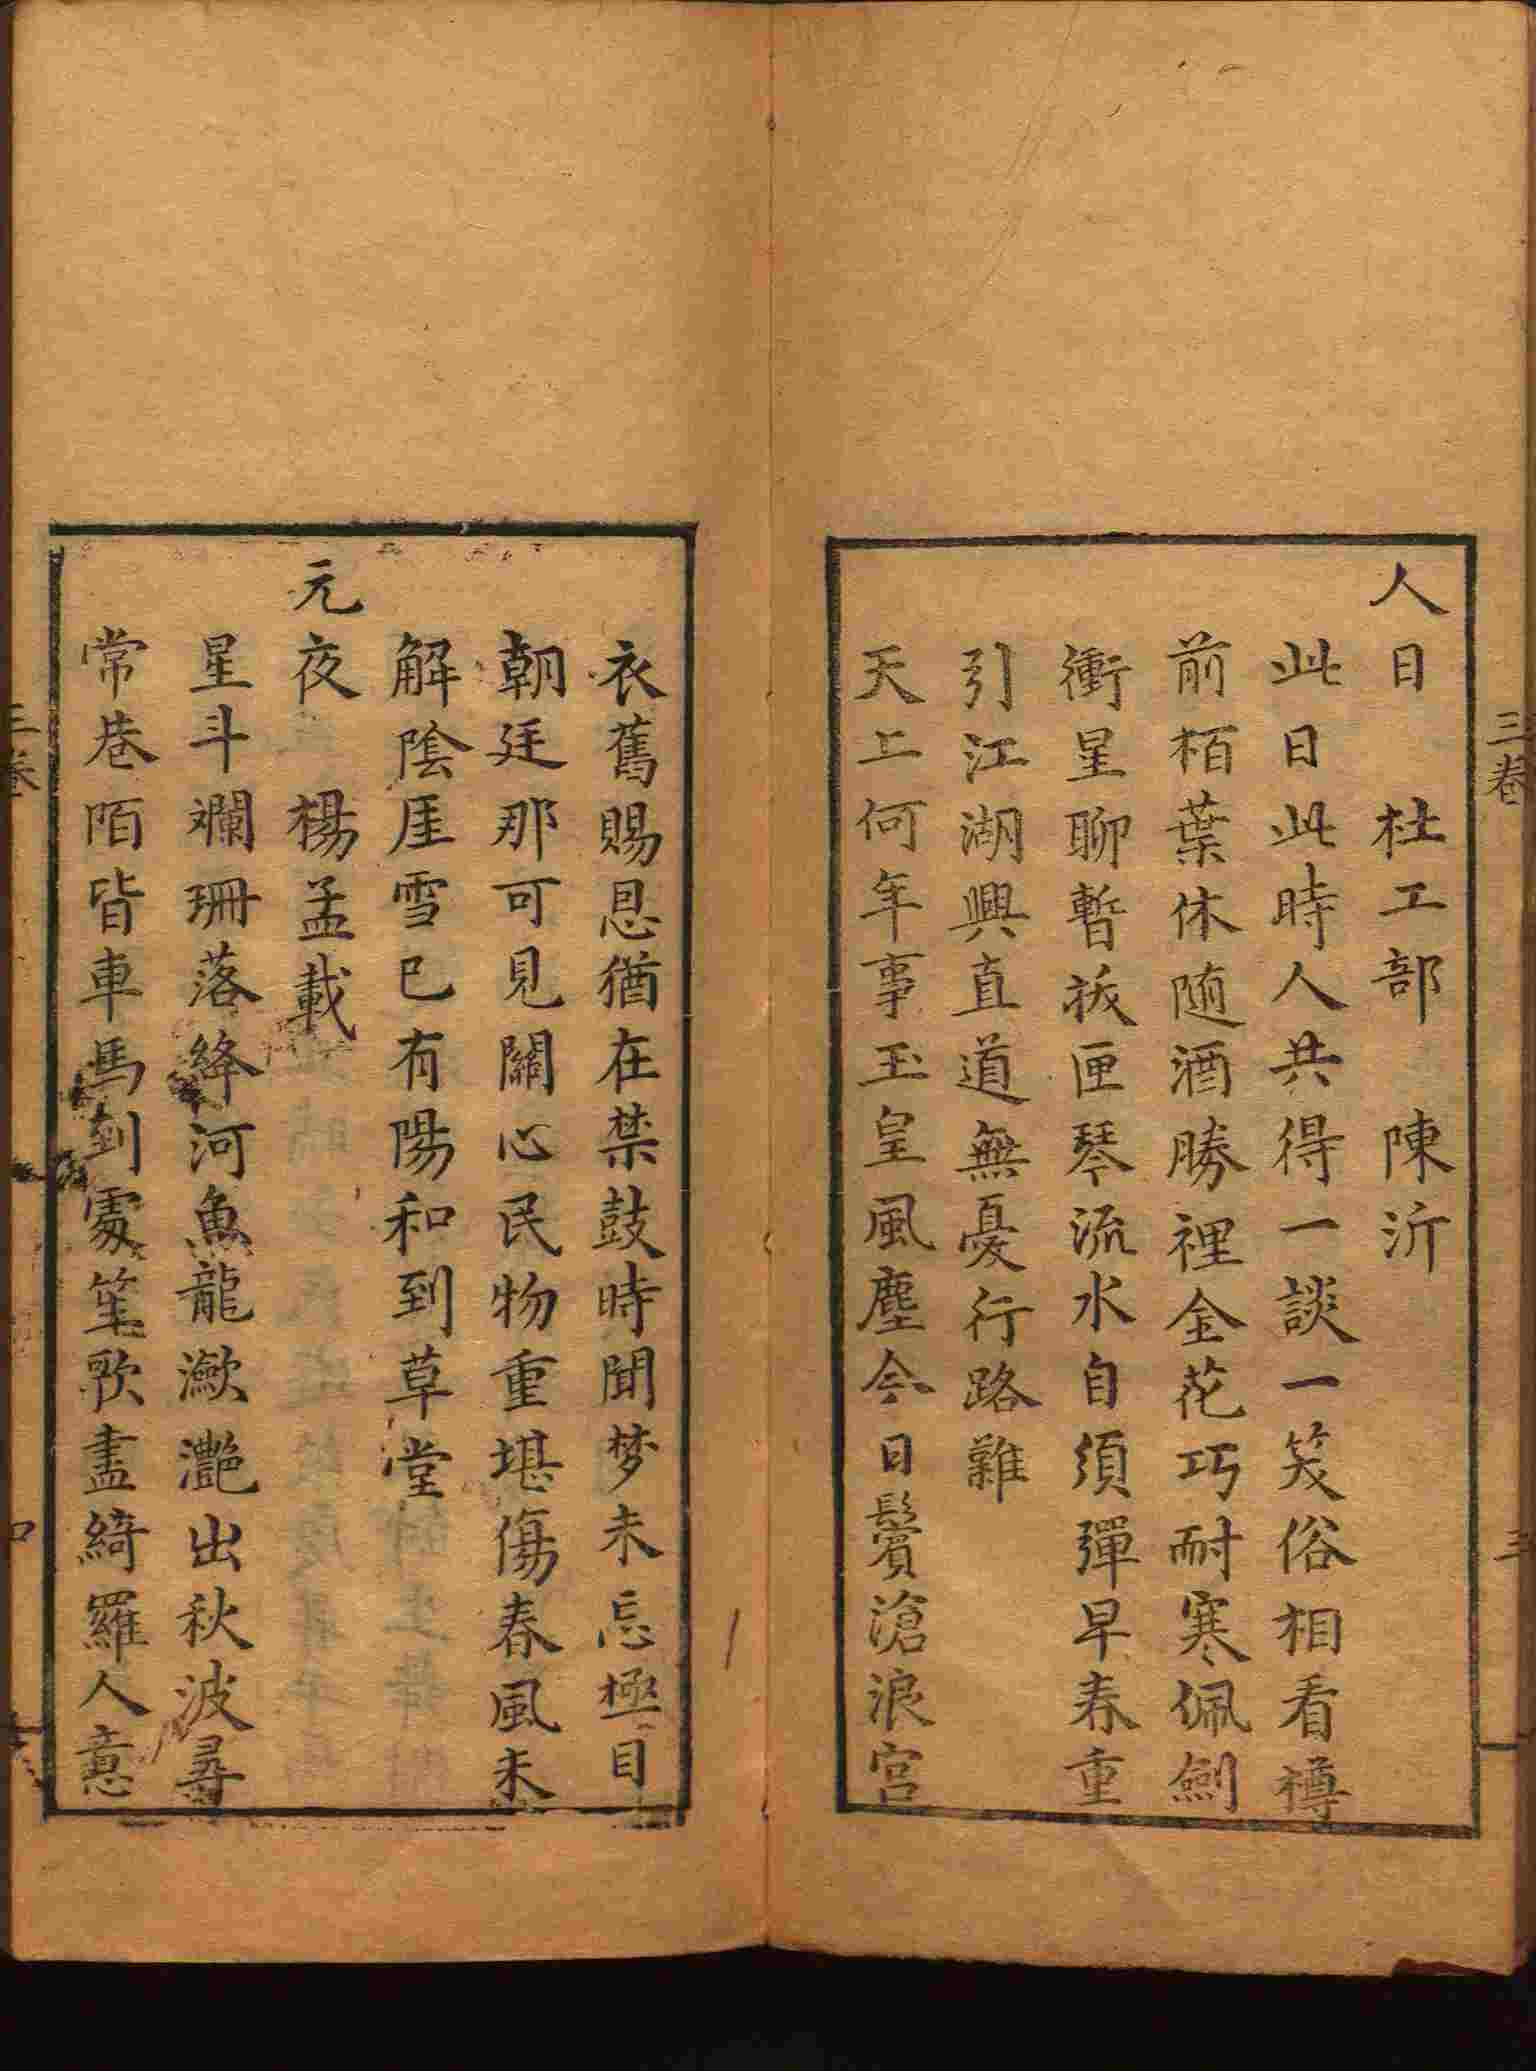 三卷
三
人日　杜工部　陳沂
此日此時人共得一談一笑俗相看樽
前栢葉休随酒勝裡金花巧耐寒佩劍
衝星聊暫拔匣琴流水自須彈早春重
引江湖興直道無憂行路難
天上何年事玉皇風塵今日鬢滄浪宫
衣舊賜恩猶在禁鼓時聞梦未忘極目
朝廷那可見關心民物重堪傷春風未
解陰厓雪已有陽和到草堂
元夜　楊孟載
星斗斕珊落絳河魚龍瀲灧出秋波尋
常巷陌皆車馬到處笙歌盡綺羅人意
三卷